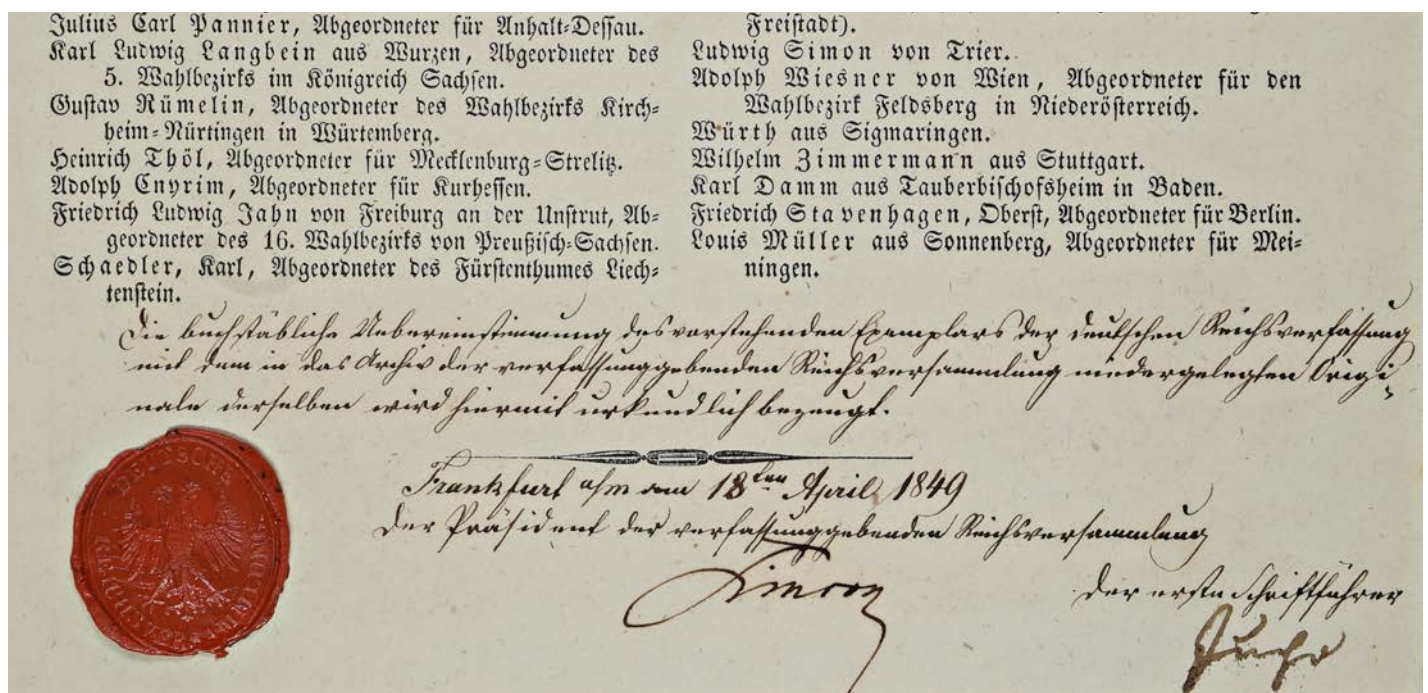 Julius Carl Pannier, Abgeordneter für Anhalt-Dessau.
Karl Ludwig Langbein aus Wurzen, Abgeordneter des
5. Wahlbezirks im Königreich Sachsen.
Gustav Rümelin, Abgeordneter des Wahlbezirks Kirch-
heim-Nürtingen in Würtemberg.
Heinrich Thöl, Abgeordneter für Mecklenburg-Strelitz.
Adolph Enyrim, Abgeordneter für Kurhessen.
Friedrich Ludwig Jahn von Freiburg an der Unstrut, Ab-
geordneter des 16. Wahlbezirks von Preußisch-Sachsen.
Schaedler, Karl, Abgeordneter des Fürstenthumes Liech-
tenstein.
Freistadt).
Ludwig Simon von Trier.
Adolph Wiesner von Wien, Abgeordneter für den
Wahlbezirk Feldsberg in Niederösterreich.
Würth aus Sigmaringen.
Wilhelm Zimmermann aus Stuttgart.
Karl Damm aus Tauberbischofsheim in Baden.
Friedrich Stavenhagen, Oberst, Abgeordneter für Berlin.
Louis Müller aus Sonnenberg, Abgeordneter für Mei-
ningen.
Die buchstäbliche Uebereinstimmung des vorstehenden Exemplars der deutschen Reichsverfassung
mit dem in das Archiv der verfassunggebenden Reichsversammlung niedergelegten Origi-
nale derselben wird hiermit urkundlich bezeugt.
Frankfurt a/m am 18ten April 1849
Der Präsident der verfassunggebenden Reichsversammlung
Simson
Der erste Schriftführer
Jucho
DEUTSCHE